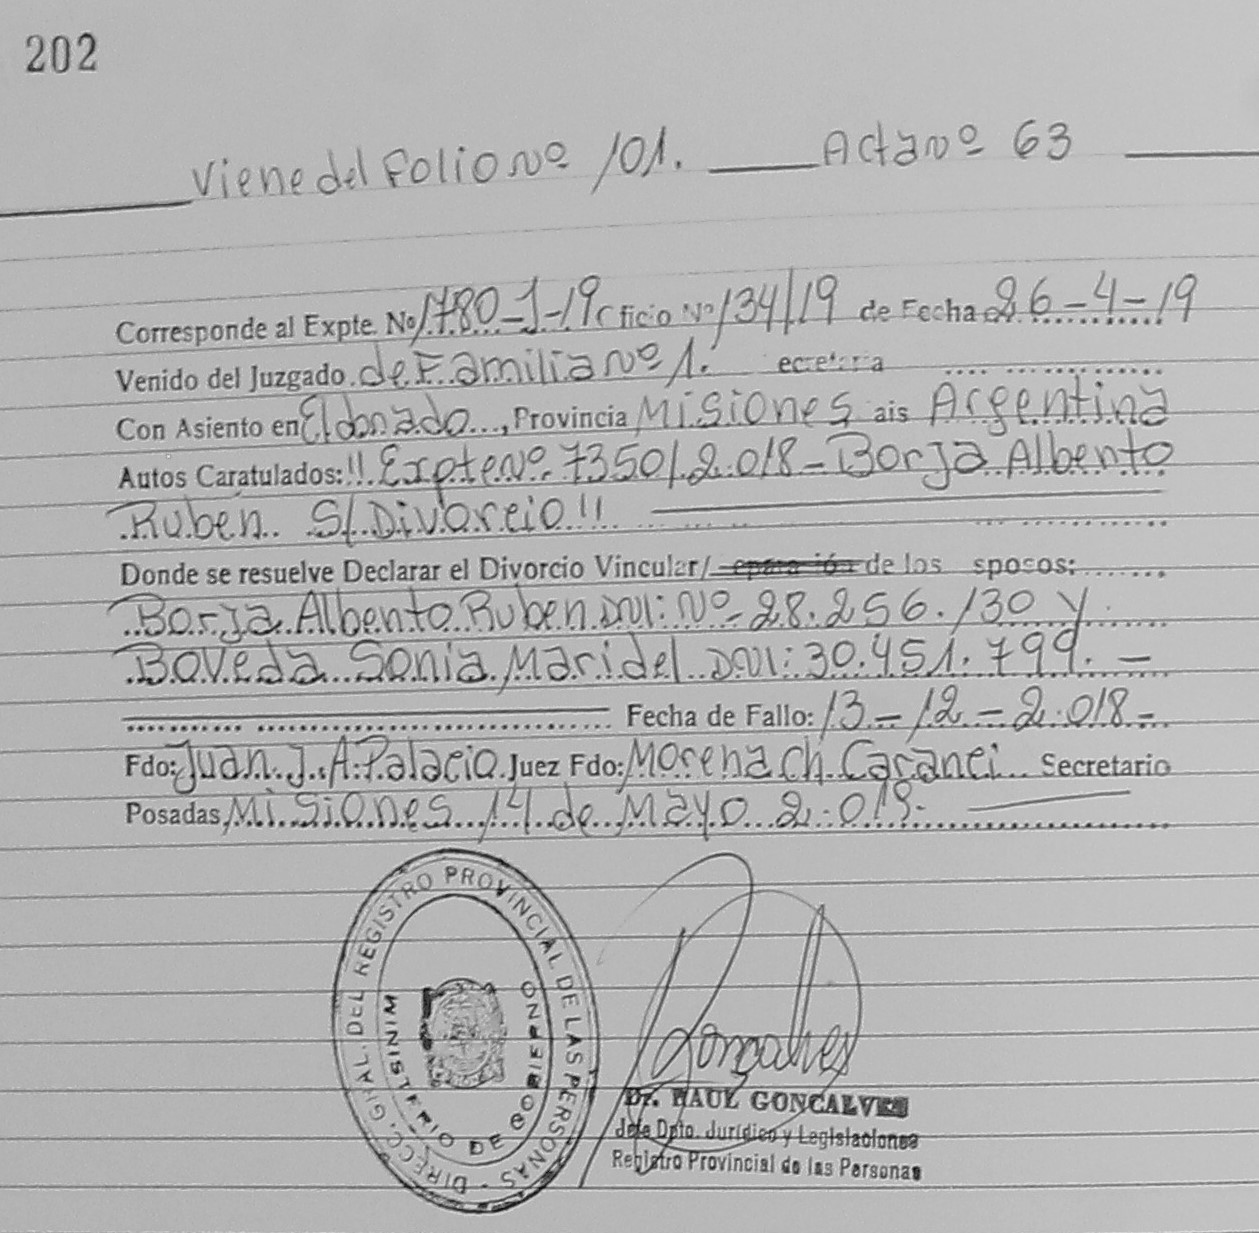 202
Viene del Folio Nº 101. Acta Nº 63
Corresponde al Expte. No 1780-J-19 ficio Nº 134/19 de Fecha 26-4-19
Venido del Juzgado de Familia Nº 1. ecretaria
Con Asiento en Eldorado, Provincia Misiones ais Argentina
Autos Caratulados: "Expte Nº 7350/2.018 - Borja Albento
Ruben S/ Divorcio"
Donde se resuelve Declarar el Divorcio Vincular/ epara ión de los sposos:
Borja Albento Ruben DNI: Nº 28.256.130 y
Boveda Sonia Maridel DNI: 30.451.799. -
Fecha de Fallo: 13-12-2.018-
Fdo: Juan J. A. Palacio Juez Fdo: Morena Ch. Caranci Secretario
Posadas, Misiones 14 de Mayo 2.019.
DIRECC. GRAL. DEL REGISTRO PROVINCIAL DE LAS PERSONAS -
MINISTERIO DE GOBIERNO
Goncalves
Dr. RAUL GONCALVES
Jefe Dpto. Jurídico y Legislaciones
Registro Provincial de las Personas